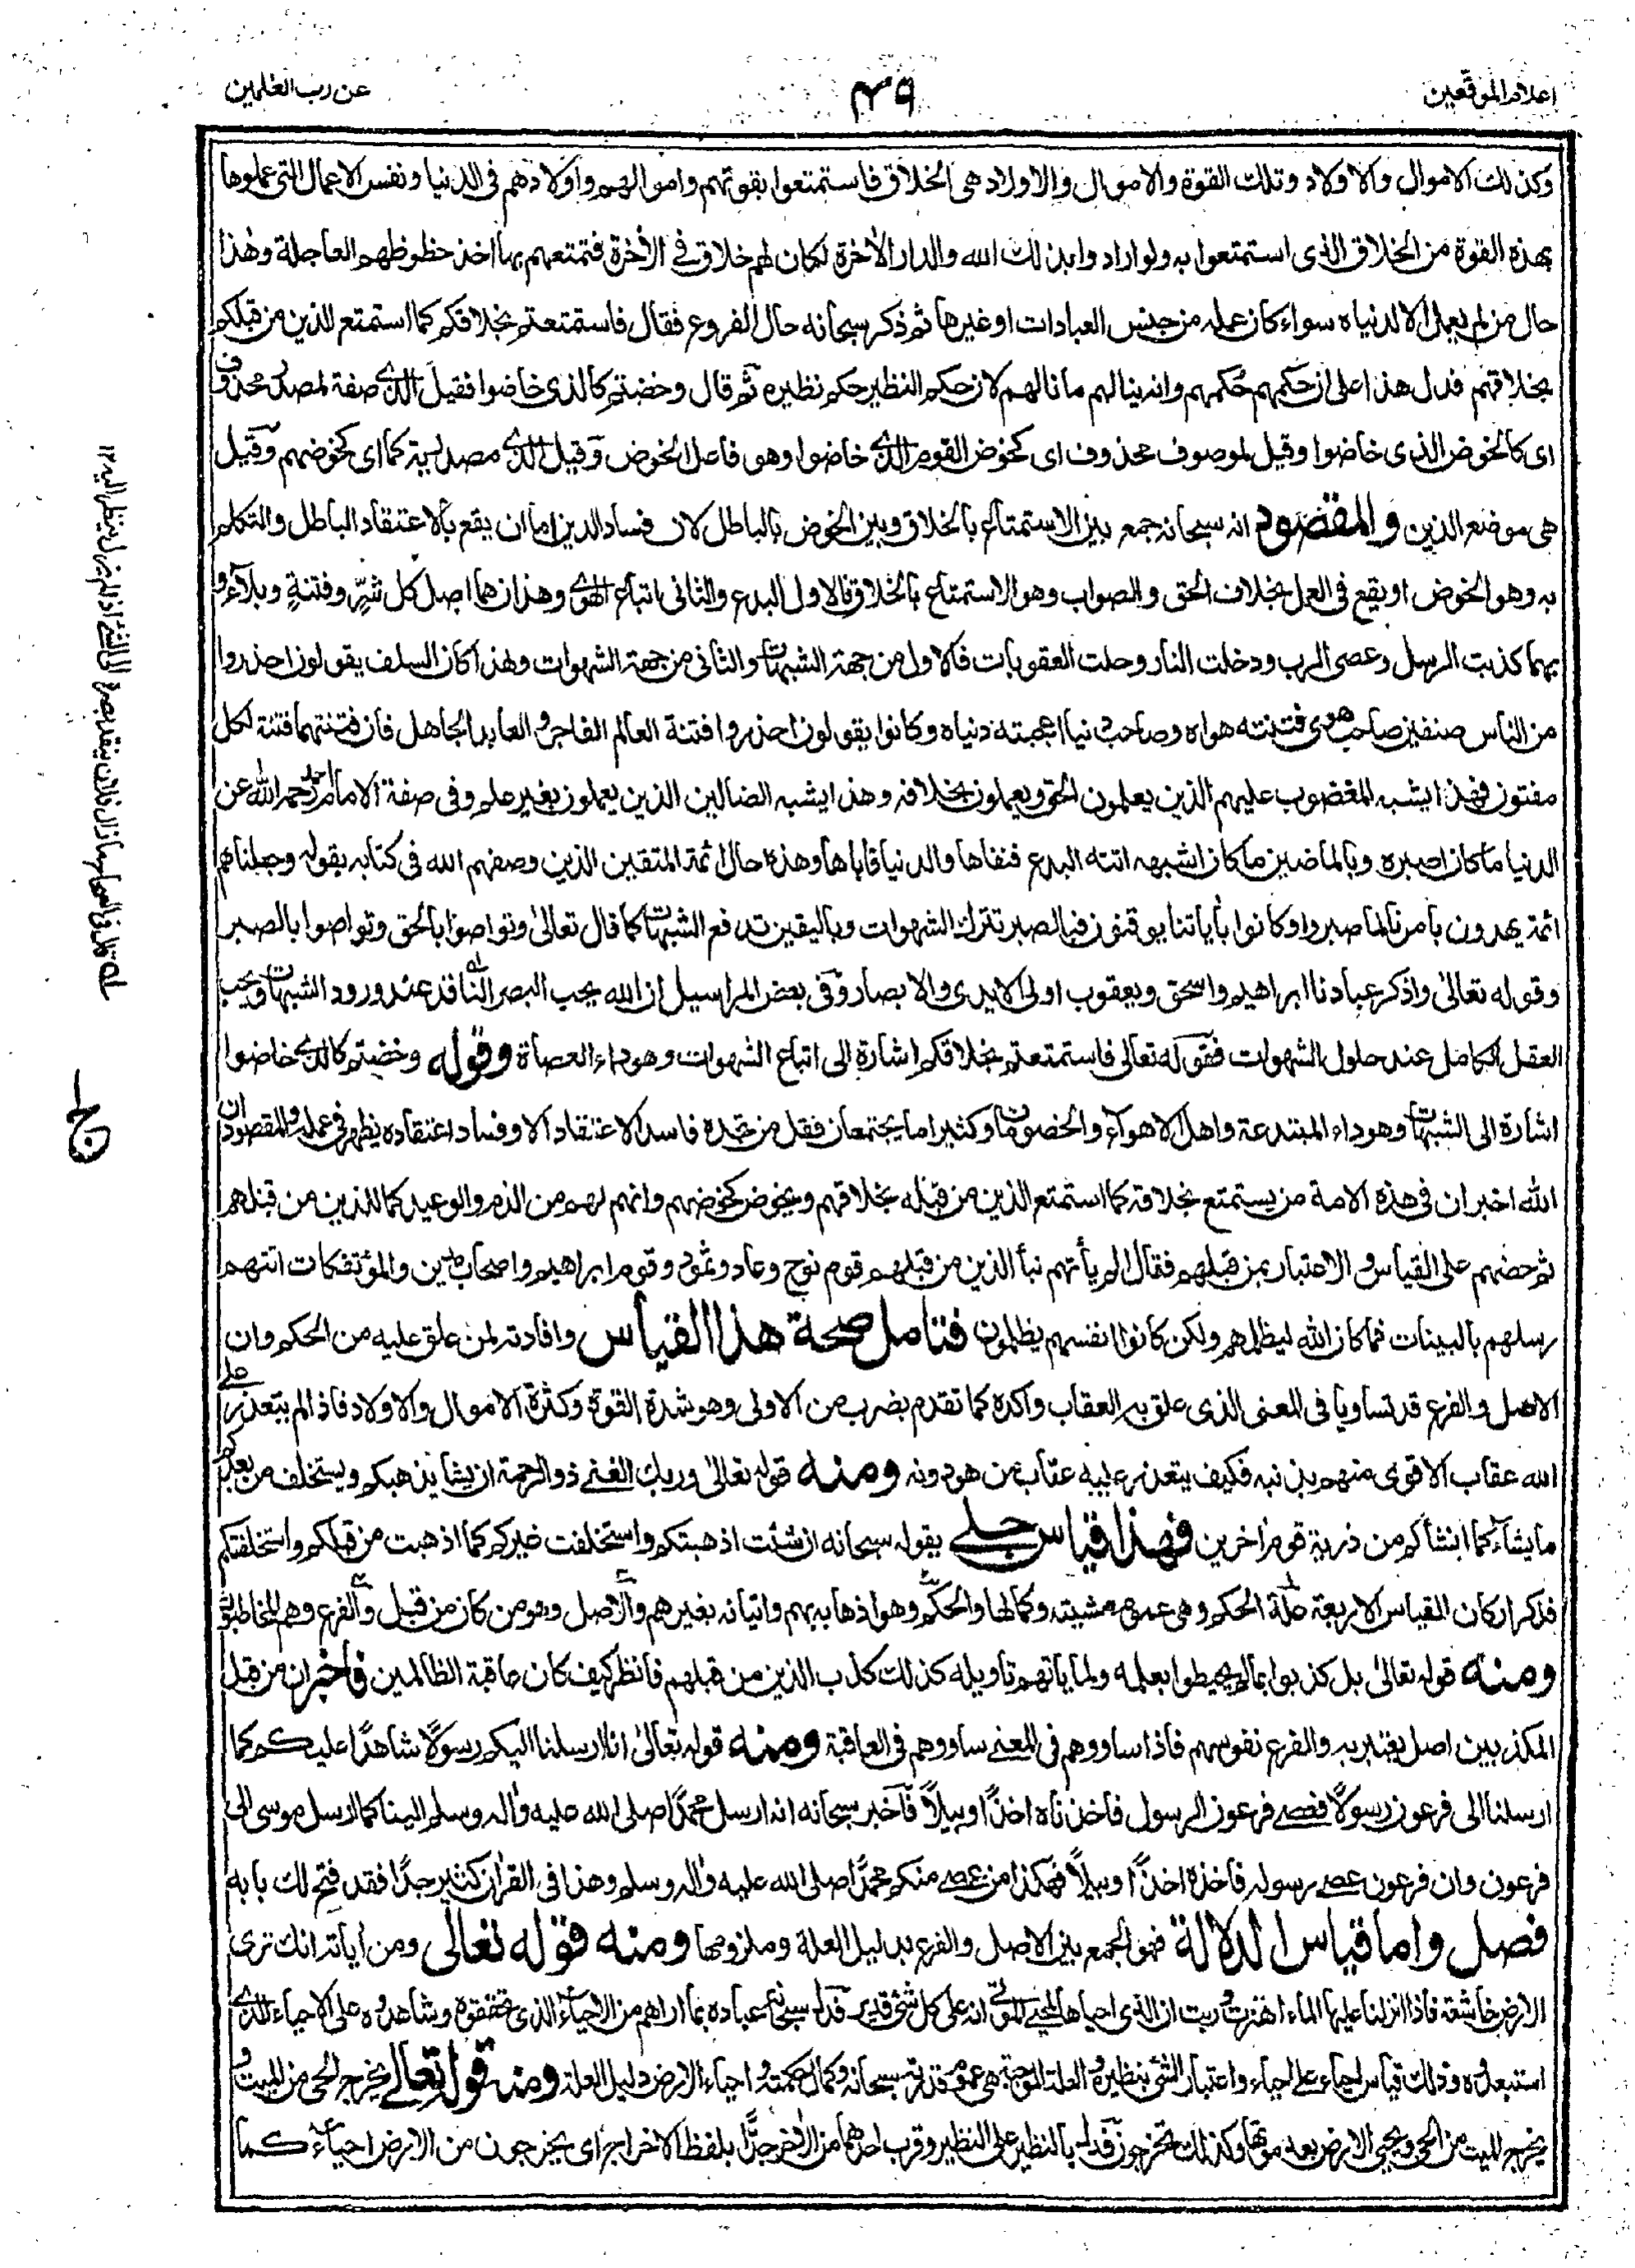 اعلام الموقعين
٤٩
عن رب العلمين
وكذلك الاموال والاولاد وتلك القوة والاموال والاولاد هى الخلاق فاستمتعوا بقوتهم واموالهم واولادهم فى الدنيا ونفس الاعمال التى عملوها
بهذه القوة من الخلاق الذى استمتعوا به ولو ارادوا بذلك الله والدار الاخرة لكان لهم خلاق فى الاخرة فتمتعهم بها اخذ حظوظهم العاجلة وهذا
حال من لم يعمل الا لدنياه سواء كان عمله من جنس العبادات او غيرها ثم ذكر سبحانه حال الفروع فقال فاستمتعتم بخلاقكم كما استمتع الذين من قبلكم
بخلاقهم فدل هذا على ان حكمهم حكمهم وانه ينالهم ما نالهم لان حكم النظير حكم نظيره ثم قال وخضتم كالذى خاضوا فقيل الذى صفة لمصدر محذوف
اى كالخوض الذى خاضوا وقيل لموصوف محذوف اى كخوض القوم الذى خاضوا وهو فاعل الخوض وقيل الذى مصدرية كما اى كخوضهم وقيل
هى موضع الذين والمقصود انه سبحانه جمع بين الاستمتاع بالخلاق وبين الخوض بالباطل لان فساد الدين اما ان يقع بالاعتقاد الباطل والتكلم
به وهو الخوض او يقع فى العمل بخلاف الحق والصواب وهو الاستمتاع بالخلاق فالاول البدع والثانى اتباع الهوى وهذان هما اصل كل شر وفتنة وبلاء و
بهما كذبت الرسل وعصى الرب ودخلت النار وحلت العقوبات فالاول من جهة الشبهات والثانى من جهة الشهوات ولهذا كان السلف يقولون احذروا
من الناس صنفين صاحب هوى فتنته هواه وصاحب دنيا اعجبته دنياه وكانوا يقولون احذروا فتنة العالم الفاجر والعابد الجاهل فان فتنتهما فتنة لكل
مفتون فهذا يشبه المغضوب عليهم الذين يعلمون الحق ويعملون بخلافه وهذا يشبه الضالين الذين يعملون بغير علم وفى صفة الامام احمد رحمه الله عن
الدنيا ما كان اصبره وبالماضين ما كان اشبهه اتته البدع فنفاها والدنيا فاباها وهذه حال ائمة المتقين الذين وصفهم الله فى كتابه بقوله وجعلناهم
ائمة يهدون بامرنا لما صبروا وكانوا بأياتنا يوقنون فبالصبر تترك الشهوات وباليقين تدفع الشبهات كما قال تعالى وتواصوا بالحق وتواصوا بالصبر
وقوله تعالى واذكر عبادنا ابراهيم واسحق ويعقوب اولى الايدى والابصار وفى بعض المراسيل ان الله يحب البصر الناقد عند ورود الشبهات ويحب
العقل الكامل عند حلول الشهوات فقوله تعالى فاستمتعتم بخلاقكم اشارة الى اتباع الشهوات وهو داء العصاة وقوله وخضتم كالذى خاضوا
اشارة الى الشبهات وهو داء المبتدعة واهل الاهواء والخصومات وكثيرا ما يجتمعان فقل من تجده فاسد الاعتقاد الا وفساد اعتقاده يظهر فى عمله والمقصود ان
الله اخبر ان فى هذه الامة من يستمتع بخلاقه كما استمتع الذين من قبله بخلاقهم ويخوض كخوضهم وانهم لهم من الذم والوعيد كما للذين من قبلهم
ثم حضهم على القياس والاعتبار بمن قبلهم فقال الم يأتهم نبأ الذين من قبلهم قوم نوح وعاد وثمود وقوم ابراهيم واصحاب مدين والمؤتفكات اتتهم
رسلهم بالبينات فما كان الله ليظلمهم ولكن كانوا انفسهم يظلمون فتامل صحة هذا القياس وافادته لمن علق عليه من الحكم وان
الاصل والفرع قد تساويا فى المعنى الذى علق به العقاب واكده كما تقدم بضرب من الاولى وهو شدة القوة وكثرة الاموال والاولاد فاذا لم يتعذر على
الله عقاب الاقوى منهم بذنبه فكيف يتعذر عليه عقاب من هو دونه ومنه قوله تعالى وربك الغنى ذو الرحمة ان يشا يذهبكم ويستخلف من بعدكم
ما يشاء كما انشأكم من ذرية قوم اخرين فهذا قياس جلى يقول سبحانه ان شئت اذهبتكم واستخلفت غيركم كما اذهبت من قبلكم واستخلفتكم
فذكر اركان القياس الاربعة علة الحكم وهى عموم مشيته وكمالها والحكم وهو اذهابه بهم واتيانه بغيرهم والاصل وهو من كان من قبل والفرع وهم المخاطبون
ومنه قوله تعالى بل كذبوا بما لم يحيطوا بعلمه ولما يأتهم تاويله كذلك كذب الذين من قبلهم فانظر كيف كان عاقبة الظالمين فاخبر ان من قبل
المكذبين اصل يعتبر به والفرع نفوسهم فاذا ساووهم فى المعنى ساووهم فى العاقبة ومنه قوله تعالى انا ارسلنا اليكم رسولا شاهدا عليكم كما
ارسلنا الى فرعون رسولا فعصى فرعون الرسول فاخذناه اخذا وبيلا فاخبر سبحانه انه ارسل محمدا صلى الله عليه واله وسلم الينا كما ارسل موسى الى
فرعون وان فرعون عصى رسوله فاخذه اخذا وبيلا فهكذا من عصى منكم محمدا صلى الله عليه واله وسلم وهذا فى القران كثير جدا فقد فتح لك بابه
فصل واما قياس الدلالة فهو الجمع بين الاصل والفرع بدليل العلة وملزومها ومنه قوله تعالى ومن اياته انك ترى
الارض خاشعة فاذا انزلنا عليها الماء اهتزت وربت ان الذى احياها لمحيى الموتى انه على كل شئ قدير فدل سبحانه عباده بما اراهم من الاحياء الذى تحققوه وشاهدوه على الاحياء الذى
استبعدوه وذلك قياس احياء على احياء واعتبار الشئ بنظيره والعلة الموجبة هى عموم قدرته سبحانه وكمال حكمته واحياء الارض دليل العلة ومنه قوله تعالى يخرج الحى من الميت و
يخرج الميت من الحى ويحيى الارض بعد موتها وكذلك تخرجون فدل بالنظير على النظير وقرب احدهما من الاخر جدا بلفظ الاخراج اى يخرجون من الارض احياء كما